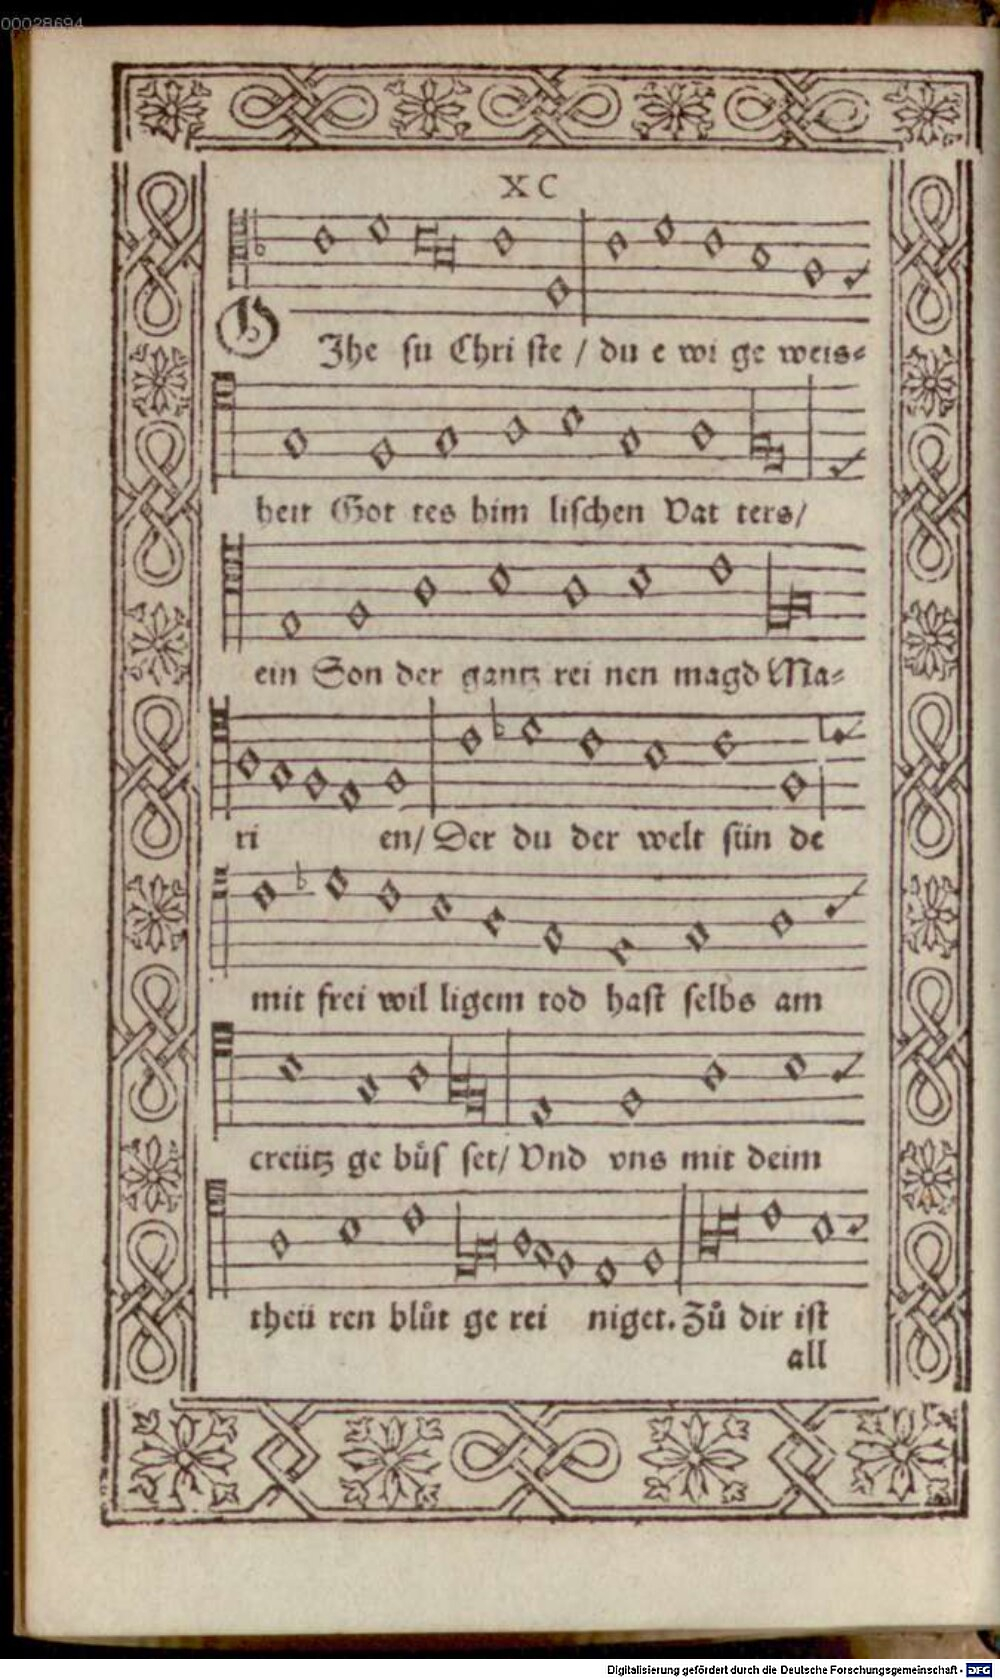 00028694
XC
O Jhe su Chri ste / du e wi ge weis⸗
heit Got tes him lischen Vat ters/
ein Son der gantz rei nen magd Ma⸗
ri en/ Der du der welt sün de
mit frei wil ligem tod hast selbs am
creütz ge bůs set/ Vnd vns mit deim
theü ren blůt ge rei niget. Zů dir ist
all
Digitalisierung gefördert durch die Deutsche Forschungsgemeinschaft - DFG